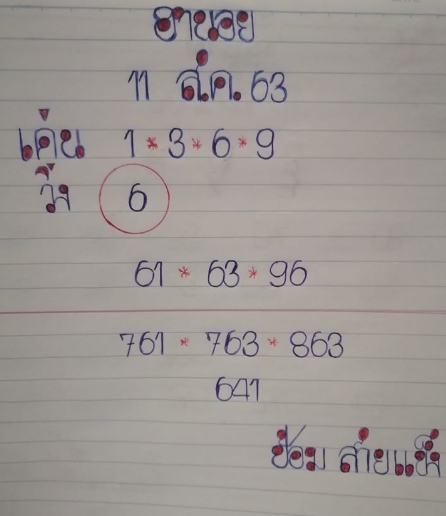 ฮานอย
11 ส.ค. 63
เด่น 1*3*6*9
วิ่ง 6
61 * 63 * 96
761 * 763 * 863
641
ป้อม สายแข็